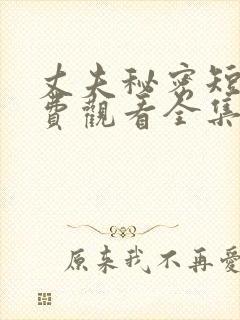 丈夫秘密短
費觀看全集
原来我不再愛